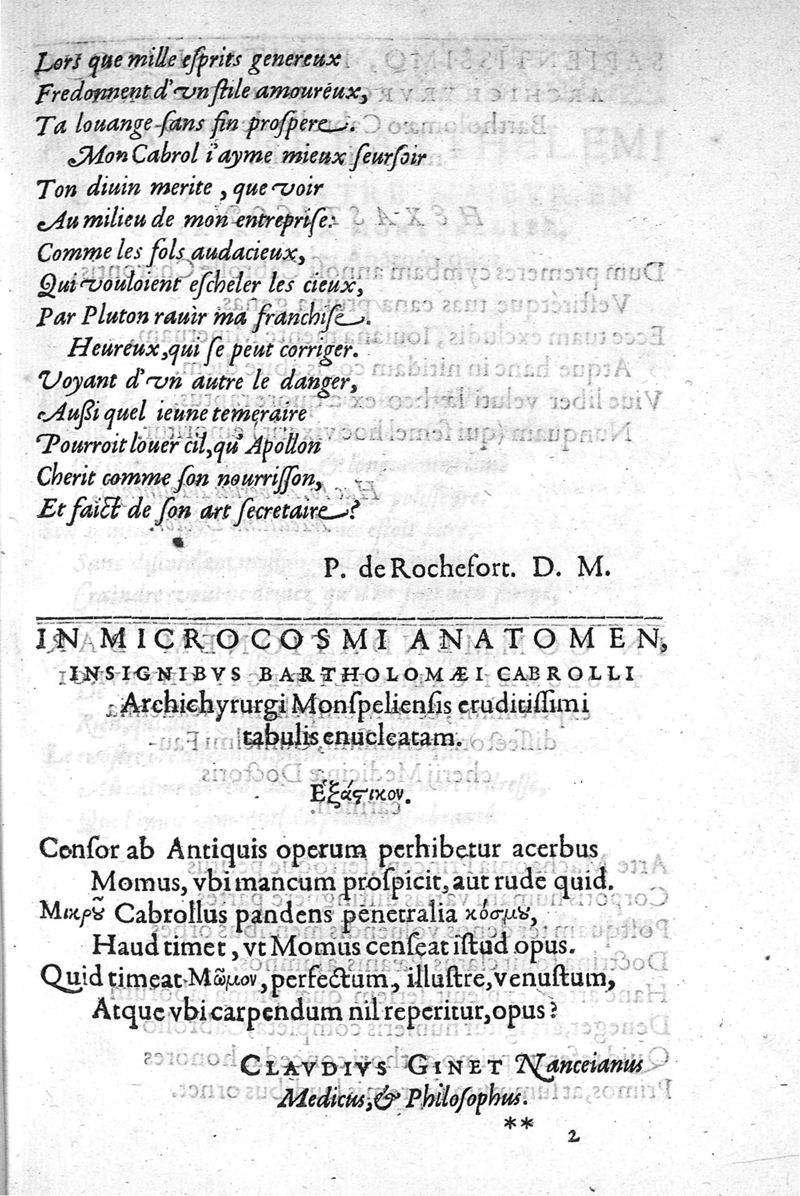 Lors que mille eſprits genereux
Fredonnent d'vn ſtile amoureux,
Ta louange ſans fin proſpere.
Mon Cabrol i'ayme mieux ſeurſoir
Ton diuin merite, que voir
Au milieu de mon entrepriſe:
Comme les fols audacieux,
Qui vouloient eſcheler les cieux,
Par Pluton rauir ma franchiſe.
Heureux, qui ſe peut corriger.
Voyant d'vn autre le danger,
Außi quel ieune temeraire
Pourroit louer cil, qu'Apollon
Cherit comme ſon nourriſſon,
Et faict de ſon art ſecretaire?
P. de Rochefort. D. M.
IN MICROCOSMI ANATOMEN,
INSIGNIBVS BARTHOLOMÆI CABROLLI
Archichyrurgi Monſpelienſis eruditiſſimi
tabulis enucleatam.
Ἑξάςικον.
Cenſor ab Antiquis operum perhibetur acerbus
Momus, vbi mancum proſpicit, aut rude quid.
Μικρȣ͂ Cabrollus pandens penetralia κόσμȣ,
Haud timet, vt Momus cenſeat iſtud opus.
Quid timeat Μῶμον, perfectum, illuſtre, venuſtum,
Atque vbi carpendum nil reperitur, opus?
CLAVDIVS GINET Nanceianus
Medicus, & Philoſophus.
** 2